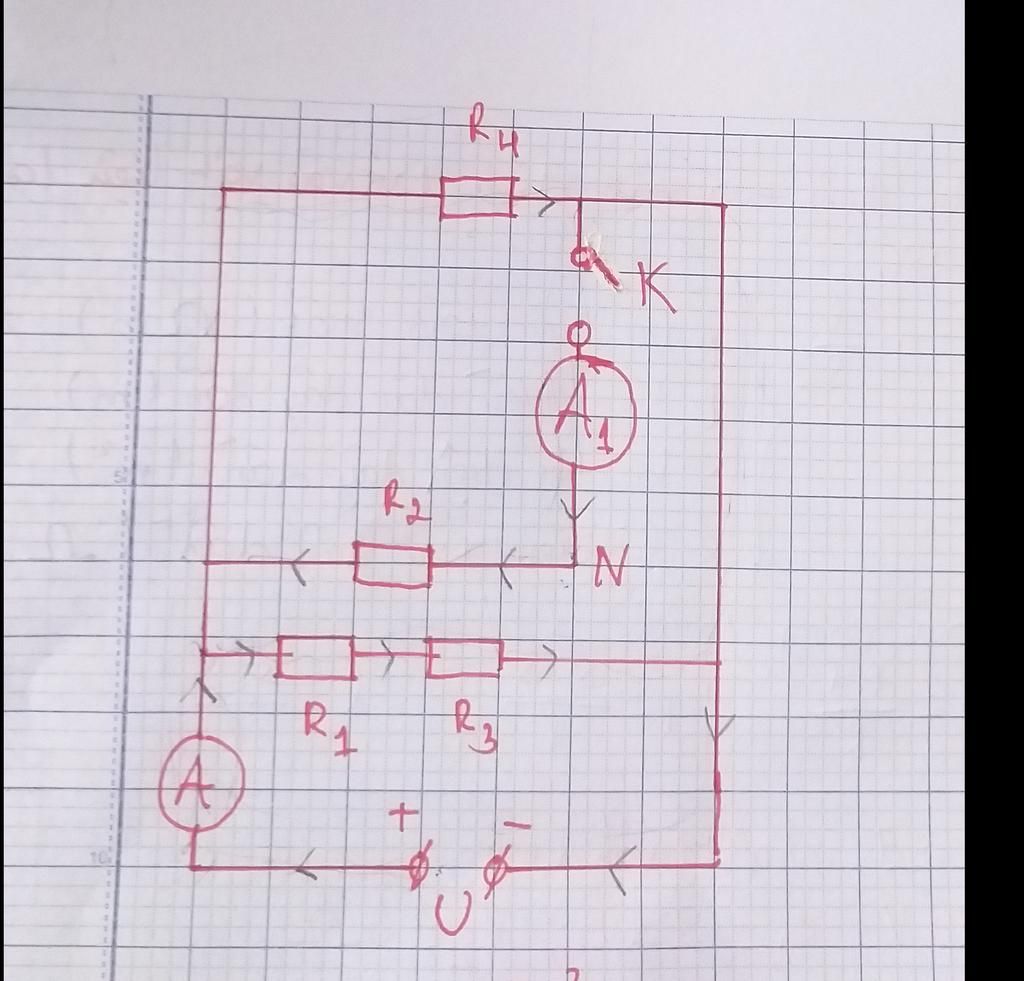 R4
K
A1
R2
N
R1
R3
A
+
-
U